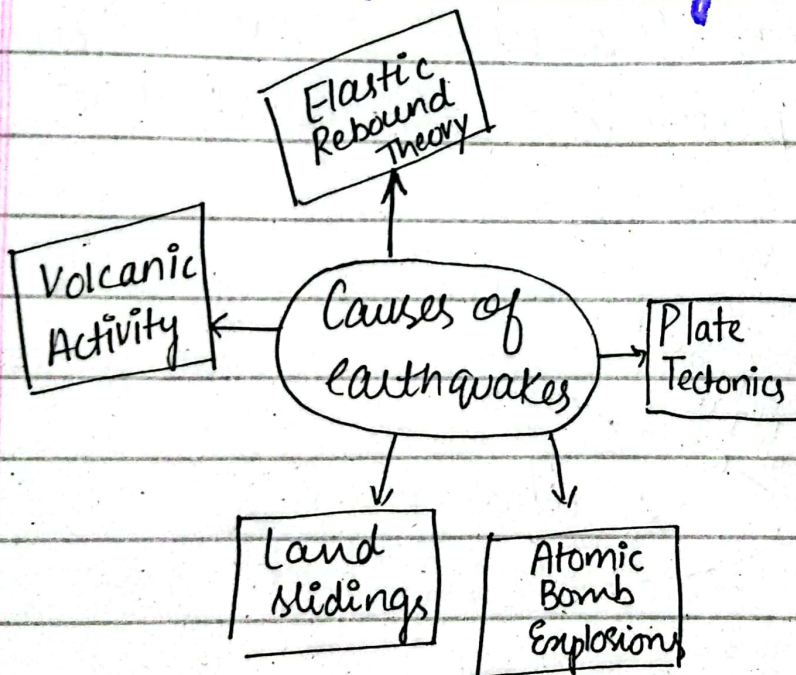 Elastic
Rebound
Theory
Volcanic
Activity
Causes of
earthquakes
Plate
Tectonics
Land
slidings
Atomic
Bomb
Explosions